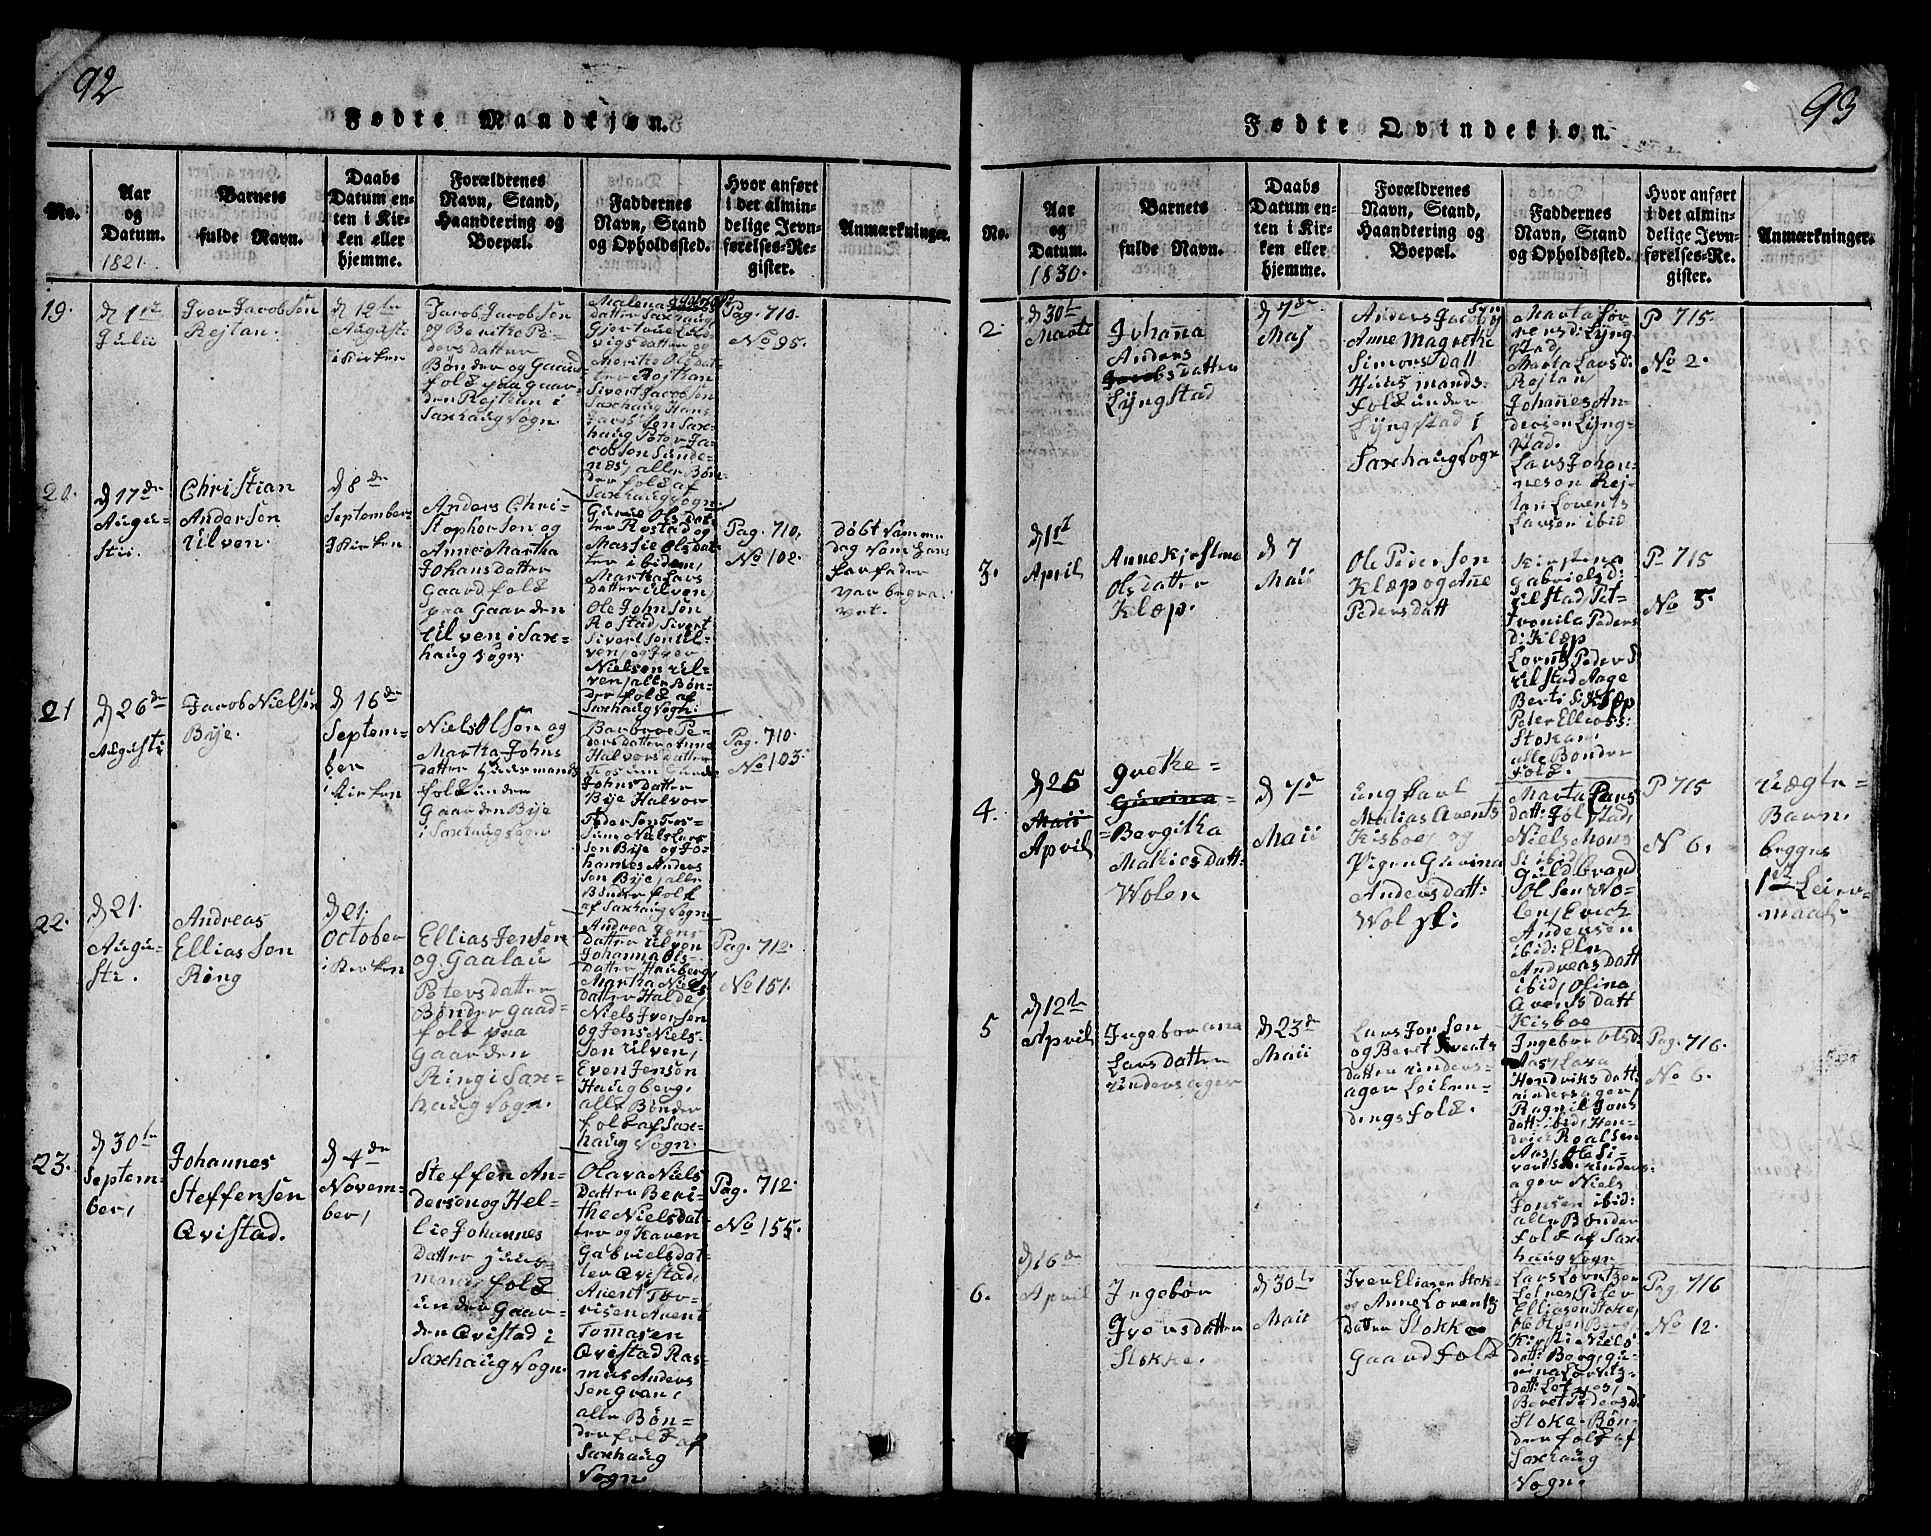 92
Fødte Mandkjøn.
No.
Aar
og
Datum.
1821.
Barnets
fulde Navn.
Daabs
Datum en-
ten i Kir-
ken eller
hjemme.
Forældrenes
Navn, Stand,
Haandtering og
Boepæl.
Faddernes
Navn, Stand
og Opholdssted.
Hvor anført
i det almin-
delige Jevn-
førelses-Re-
gister.
Anmærkninger.
19.
d 1st
Julii
Iver Jacobsen
Rejtan.
d 12te
August
i Kirken
Jacob Jacobsen
og Berithe Pe-
dersdatter
Bønder og Gaard
folk paa Gaar-
den Rejtan i
Saxhaug Sogn.
Malena
datter Saxhaug
Gjertrue Lud-
vigsdatter og
Merithe Olsdat-
ter Rojtkan
Sivert Jacobsen
Saxhaug Hans
Jacobsen Sax-
haug Peter Ja-
cobsen Sunde-
næs, alle Bøn-
der folk af
Saxhaug Sogn.
Pag. 710.
No 95.
20.
d 17de
Augu-
stii.
Christian
Andersen
Ulven.
d 8de
September
i Kirken
Anders Chri-
stophersen og
Anne Martha
Johansdatter
Gaardfolk
paa Gaarden
Ulven i Sax-
haug Sogn.
Gurue Olsdat-
ter Rostad og
Massie Olsdat-
ter ibidem,
Martha Lars
datter Ulven
Ole Johnsen
Rostad Sivert
Sivertsen Ul-
ven, og Iver
Nielsen Ul-
ven, alle Bøn-
der folk af
Saxhaug Sogn:
Pag. 710,
No 102.
døbt samme
dag som hans
farfader
var begra-
vet.
21
d 26de
Augusti
Jacob Nielsen
Bye.
d 16de
Septem-
ber
i Kirken
Niels Olsen og
Martha Johns
datter Huusmands
folk under
Gaarden Bye
i Saxhaug Sogn
Barbroe Pe-
dersdatter Anne
Halvorsdatter
Johnsdatter
Bye Halvor
Pedersen Fos-
sum Niels Lars
sen Bye og Jo-
hannes Anders
sen Bye, alle
Bønder folk
af Saxhaug Sogn
Pag. 710.
No 103.
22.
d 21.
Augu-
sti.
Andreas
Elliassen
Ring
d 21.
October
i Kirken
Ellias Jensen
og Gaalau
Petersdatter
Bønder Gaard-
folk paa
Gaarden
Ring i Sax-
haug Sogn.
Andrea Jens
datter Ulven
Johanna Ols-
datter Hauberg
Martha Niels
datter Halde,
Niels Iversen
og Jens Niels-
sen Ulven,
Even Jensen
Haugberg,
alle Bønder
folk af Sax-
haug Sogn.
Pag. 712.
No 151.
23.
d 30te
Septem-
ber,
Johannes
Steffensen
Qvistad.
d 4de
Novem-
ber,
Steffen An-
dersen og Hel-
lie Johannes
datter Huus-
mands folk
under Gaar-
den Qvistad i
Saxhaug Sogn.
Olava Niels
datter Beri-
the Nielsdat-
ter og Karen
Gabrielsdat-
ter Qvistad,
Avent Tor-
risen Avent
Tomasen
Qvistad Ras-
mus Anders
sen Gran,
alle Bøn-
derfolk af
Saxhaug
Sogn.
Pag. 712.
No 155.
93
Fødte Qvindekjøn.
No.
Aar
og
Datum.
1830.
Barnets
fulde Navn.
Daabs
Datum en-
ten i Kir-
ken eller
hjemme.
Forældrenes
Navn, Stand,
Haandtering og
Boepæl.
Faddernes
Navn, Stand
og Opholdssted.
Hvor anført
i det almin-
delige Jevn-
førelses-Re-
gister.
Anmærkninger.
2.
d 30te
Marti
Johana
Anders
Jacobsdatter
Lyngstad
d 7de
Maj
Anders Jacobs
Anne Magrethe
Simonsdatt
Huusmands-
folk under
Lyngstad i
Saxhaug Sogn
Marta Tor-
nersd: Lyng-
stad,
Marta Larsd:
Rejtan,
Johanes An-
dersen Lyng-
stad.
Lars Johan-
nesen Rej-
tan Lorents
Larsen ibid
P 715.
No 2.
3.
d 1st
April
Anne Kjerstina
Olsdatter
Klæp.
d 7
Maii
Ole Pedersen
Klæp og Ane
Pedersdatt
Kirstina
Gabrielsd:
Ulstad, Pet-
tronila Peders
d: Klæp
Lorntz Peders
Ulstad Aage
Berts: Klæp
Peter Ellias:
Stokan,
alle Bønder
folk.
P 715
No 5.
4.
d 25
Maii
April
Grethe-
Guvina-
Bergitha
Mathiesdatt:
Wolen
d 7d
Maii
Ung Karl
Matias Avents
Kisboe og
Pigen Guvina
Andersdatt:
Wol sl:
Marta Lars
datt: Folstad,
Niels Mons
s: ibid:
Guldbrand
Olsen Wo-
len, Erich
Andersen
ibid: Eln
Andreasdatt
ibid, Olina
Aventsdatt
Kisboe
P 715
N 6.
Uægte-
Barn
begges
1st Leier-
maal.
5
d 12te
April
Ingeborana
Larsdatter
Undersager
d 23de
Maii
Lars Jonsen
og Beret Sivents
datter Unders-
ager Leilen-
dingsfolk.
Ingebor Olsd:
Aas, Lava
Hendriksdatt:
Undersager,
Ragnil Jons
datt: ibid, Hen-
drich Roalsen
Aas, Ole Si-
vertsen Unders-
ager Niels
Jonsen ibid:
alle Bønder
folk af Sax-
haug Sogn
Pag. 716.
No 6.
6.
d 16de
April
Ingebør
Iversdatter
Stokke.
d 30te
Maii
Iver Eliasen Stoke
og Anne Lorents
datter Stokke
Gaardfolk
Lars Lorntzen
Letnes, Peter
Elliasen Stoke,
Ole Olsen Berg,
Kirsti Niels
datt: Berg, Gu-
rina Lorntz-
datt: Letnes,
Beret Pedersd:
Stoke. Bøn-
der folk af
Saxhaug
Sogn.
Pag. 716
No 12.